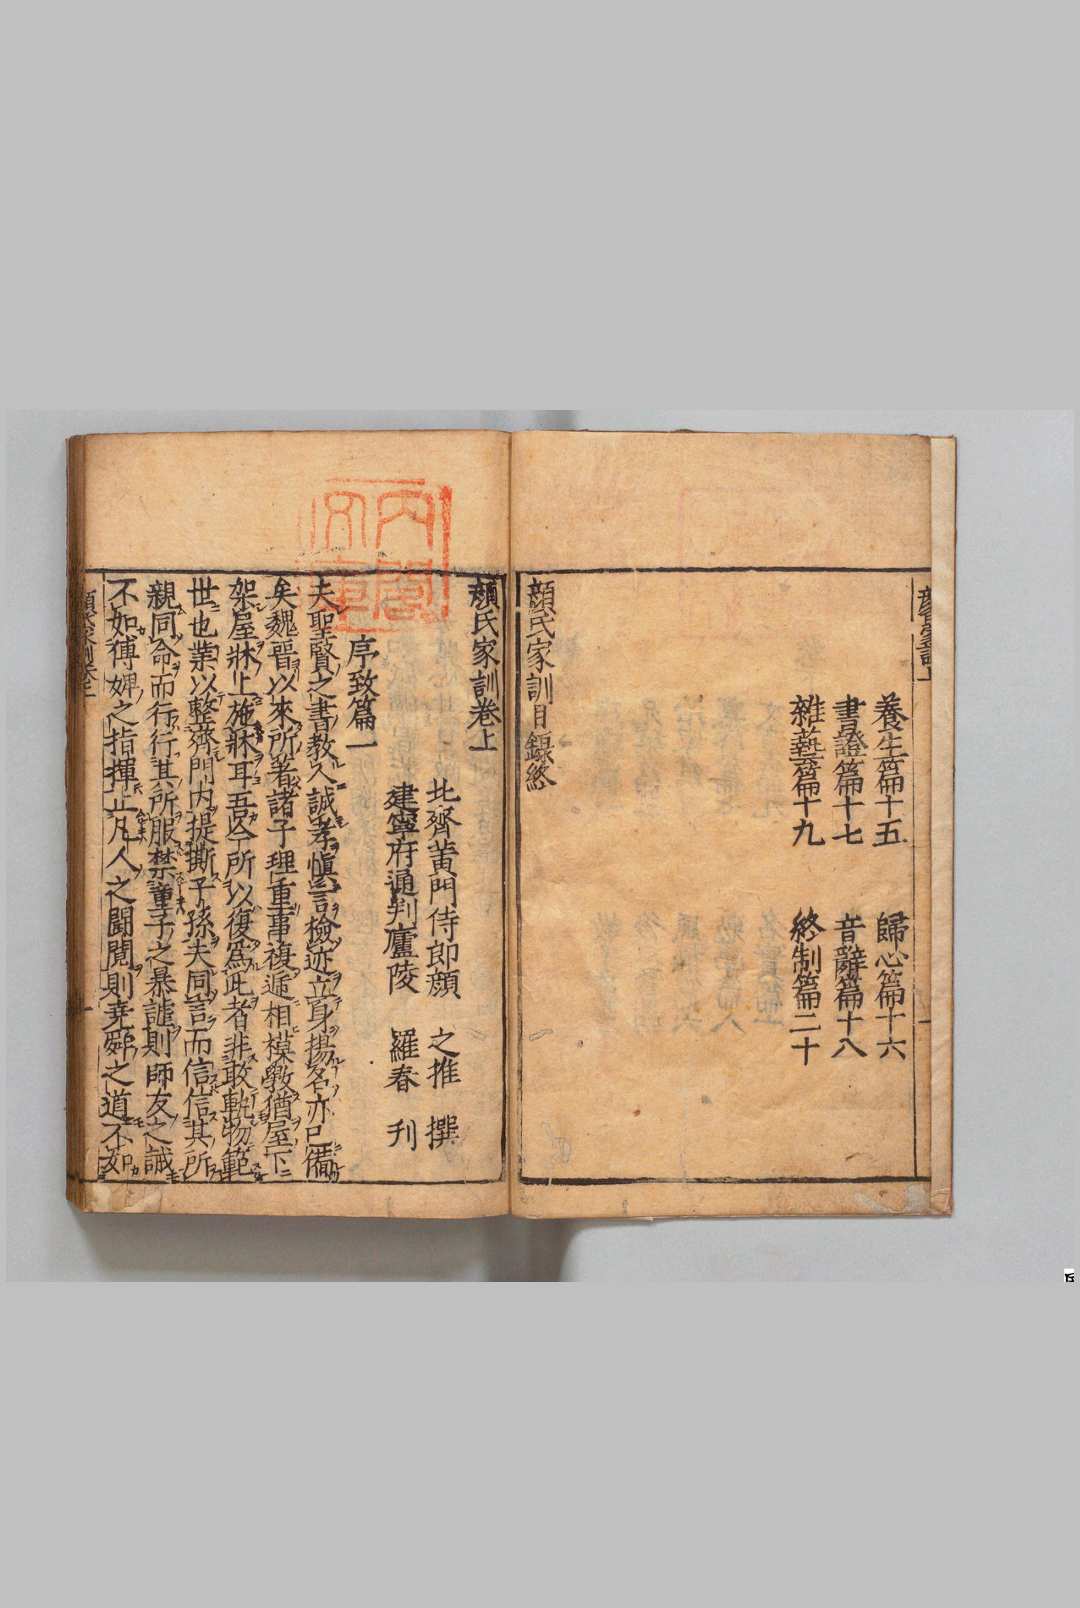 養生篇十五　歸心篇十六
書證篇十七　音辭篇十八
雜藝篇十九　終制篇二十
顔氏家訓目録終
顔氏家訓卷上
北齊黄門侍郎顔　之推　撰
建寧府通判廬陵　羅春　刊
序致篇一
夫聖賢之書教人誠孝慎言檢迹立身揚名亦已備
矣魏晉以來所著諸子理重事複遞相模斆猶屋下
架屋牀上施牀耳吾今所以復爲此者非敢軌物範
世也業以整齊門内提撕子孫夫同言而信信其所
親同命而行行其所服禁童子之暴謔則師友之誡
不如傅婢之指揮止凡人之鬪鬩則堯舜之道不如
内閣文庫